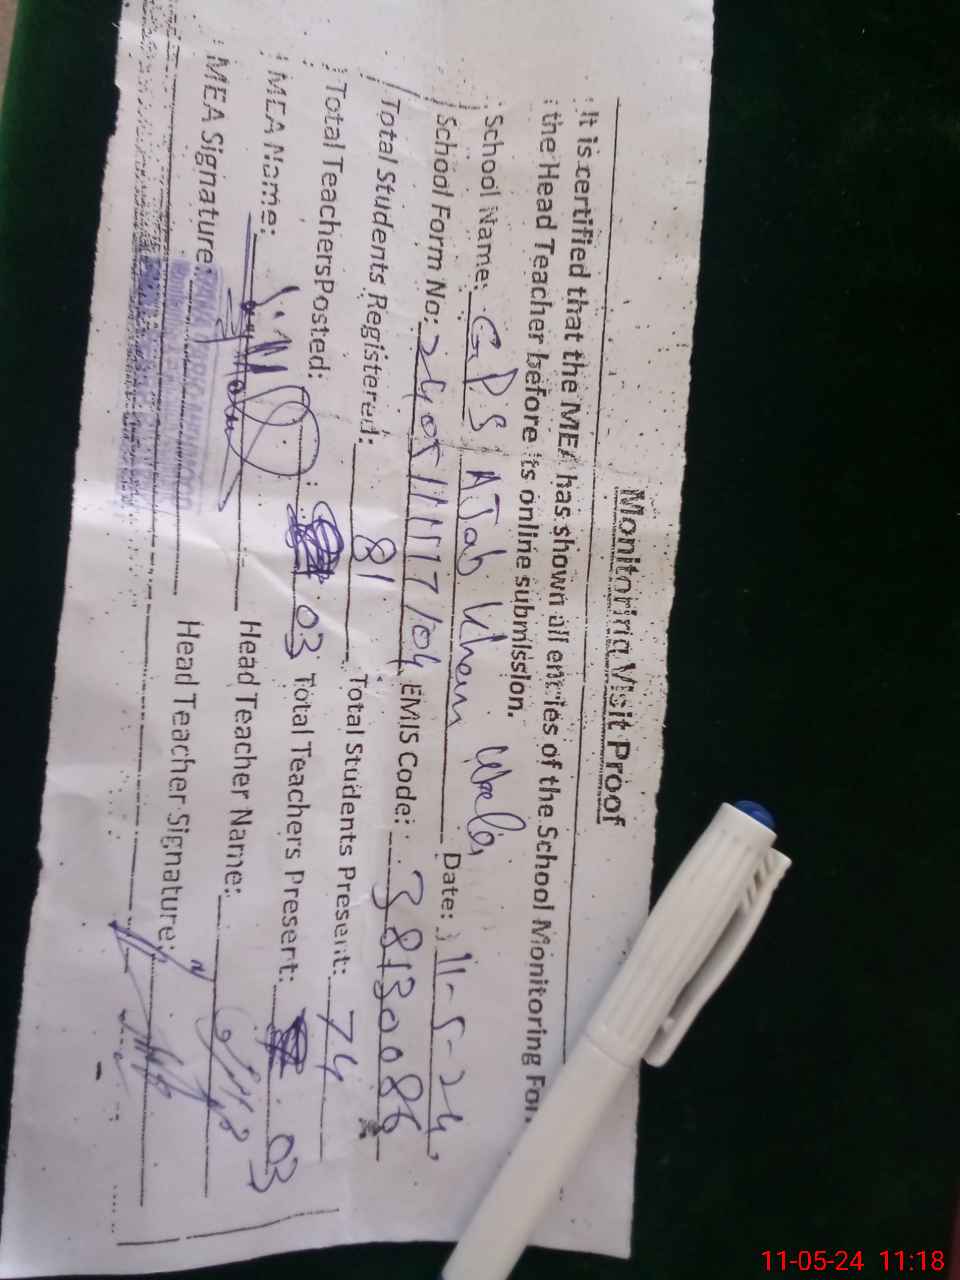 Monitoring Visit Proof
It is certified that the MEA has shown all entries of the School Monitoring For
the Head Teacher before its online submission.
School Name: GPS AJab Khan Wala Date: 11-5-24
School Form No: 2405111117/04 EMIS Code: 38130086
Total Students Registered: 81 Total Students Present: 74
Total Teachers Posted: 03 Total Teachers Present: 03
MEA Name: Head Teacher Name:
MEA Signature: Head Teacher Signature:
11-05-24 11:18